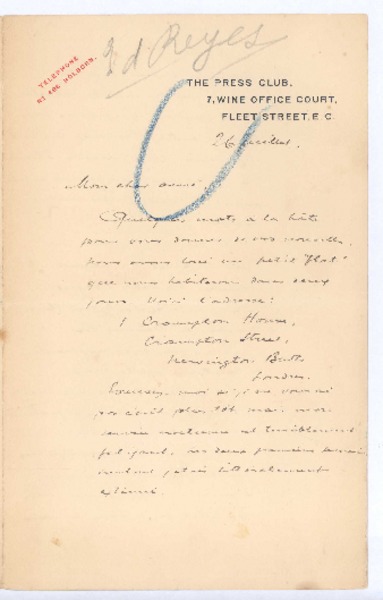 3 d Reyes
TELEPHONE
HOLBORN.
THE PRESS CLUB.
7, WINE OFFICE COURT,
FLEET STREET. E. C.
26 juillet.
Mon cher
Quelques mots a la hâte
pour vous donner de nos nouvelles.
Nous avons loué un petit "flat"
que nous habiterons dans deux
jours. Voici l'adresse:
1 Crampton House,
Crampton Street,
Newington Butts
Londres.
Excusez-moi si je ne vous ai
pas écrit plus tôt mais mon
est terriblement
fatigant,
j'étais littéralement
exténué.